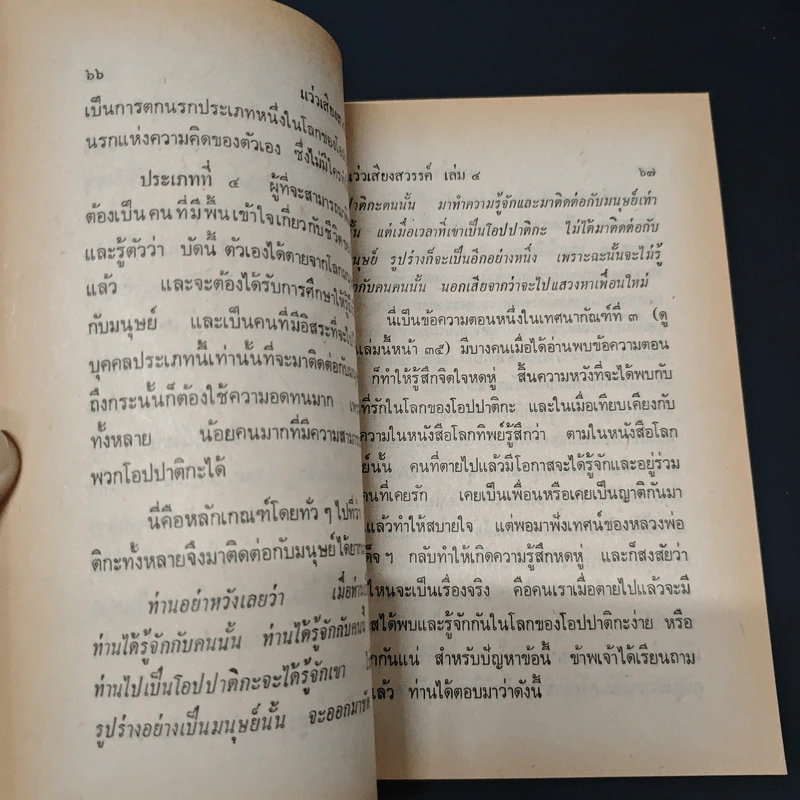 ๖๖
แว่วเสียง
เป็นการตกนรกประเภทหนึ่งในโลกของ
นรกแห่งความคิดของตัวเอง ซึ่งไม่มีใคร
ประเภทที่ ๔ ผู้ที่จะสามารถ
ต้องเป็นคนที่มีพื้นเข้าใจเกี่ยวกับชีวิต
และรู้ตัวว่า บัดนี้ ตัวเองได้ตายจากโลก
แล้ว และจะต้องได้รับการศึกษาให้
กับมนุษย์ และเป็นคนที่มีอิสระที่จะ
บุคคลประเภทนี้เท่านั้นที่จะมาติดต่อกับ
ถึงกระนั้นก็ต้องใช้ความอดทนมาก
ทั้งหลาย น้อยคนมากที่มีความสามา
พวกโอปปาติกะได้
นี่คือหลักเกณฑ์โดยทั่ว ๆ ไปที่ว่า
ติกะทั้งหลายจึงมาติดต่อกับมนุษย์ได้ยาก
ท่านอย่าหวังเลยว่า เมื่อท่าน
ท่านได้รู้จักกับคนนั้น ท่านได้รู้จักกับคน
ท่านไปเป็นโอปปาติกะจะได้รู้จักเขา
รูปร่างอย่างเป็นมนุษย์นั้น จะออกมา
แว่วเสียงสวรรค์ เล่ม ๔ ๖๗
ปาติกะตนนั้น มาทำความรู้จักและมาติดต่อกับมนุษย์เท่า
นั้น แต่เมื่อเวลาที่เขาเป็นโอปปาติกะ ไม่ได้มาติดต่อกับ
นุษย์ รูปร่างก็จะเป็นอีกอย่างหนึ่ง เพราะฉะนั้นจะไม่รู้
กับคนคนนั้น นอกเสียจากว่าจะไปแสวงหาเพื่อนใหม่
นี่เป็นข้อความตอนหนึ่งในเทศนากัณฑ์ที่ ๓ (ดู
เล่มนี้หน้า ๓๕) มีบางคนเมื่อได้อ่านพบข้อความตอน
ก็ทำให้รู้สึกจิตใจหดหู่ สิ้นความหวังที่จะได้พบกับ
ที่รักในโลกของโอปปาติกะ และในเมื่อเทียบเคียงกับ
ความในหนังสือโลกทิพย์รู้สึกว่า ตามในหนังสือโลก
ย์นั้น คนที่ตายไปแล้วมีโอกาสจะได้รู้จักและอยู่ร่วม
คนที่เคยรัก เคยเป็นเพื่อนหรือเคยเป็นญาติกันมา
แล้วทำให้สบายใจ แต่พอมาฟังเทศน์ของหลวงพ่อ
ด็จ ๆ กลับทำให้เกิดความรู้สึกหดหู่ และก็สงสัยว่า
ไหนจะเป็นเรื่องจริง คือคนเราเมื่อตายไปแล้วจะมี
สได้พบและรู้จักกันในโลกของโอปปาติกะง่าย หรือ
ากันแน่ สำหรับปัญหาข้อนี้ ข้าพเจ้าได้เรียนถาม
แล้ว ท่านได้ตอบมาว่าดังนี้